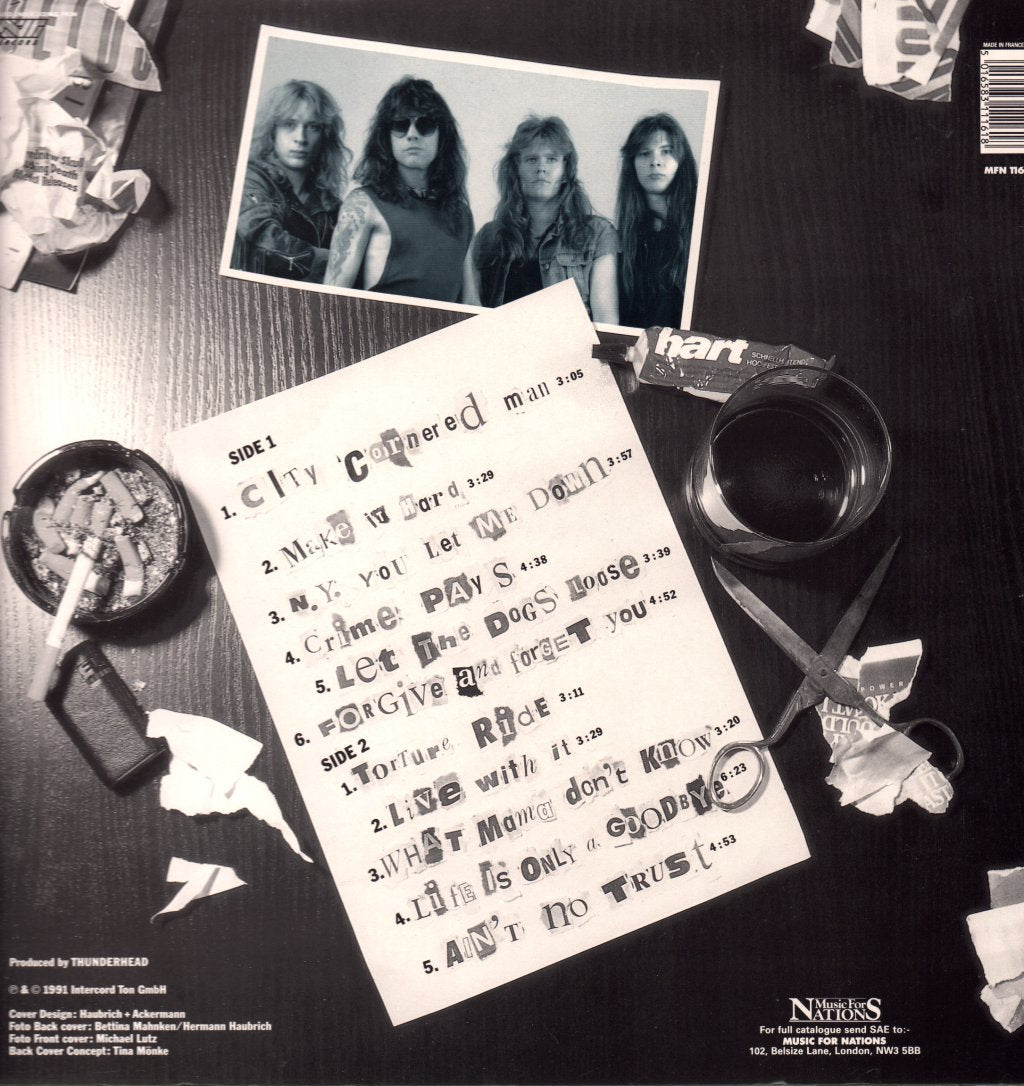 MADE IN FRANCE
5 016583 111618
MFN 116
hart
SIDE 1
1. CITY CORNERED man 3:05
2. Make iT Hard 3:29
3. N.Y. YOU Let ME DOWN 3:57
4. Crime PAYS 4:38
5. Let The DOGS Loose 3:39
6. FORGive and forGET you 4:52
SIDE 2
1. TorTure RIdE 3:11
2. Live with it 3:29
3. WHAT Mama don't Know 3:20
4. LIfE Is ONLY a GOODBYe 6:23
5. AIN'T no TRUST 4:53
POWER
Produced by THUNDERHEAD
℗ & © 1991 Intercord Ton GmbH
Cover Design: Haubrich + Ackermann
Foto Back cover: Bettina Mahnken/Hermann Haubrich
Foto Front cover: Michael Lutz
Back Cover Concept: Tina Mönke
Music For NATIONS
For full catalogue send SAE to:-
MUSIC FOR NATIONS
102, Belsize Lane, London, NW3 5BB